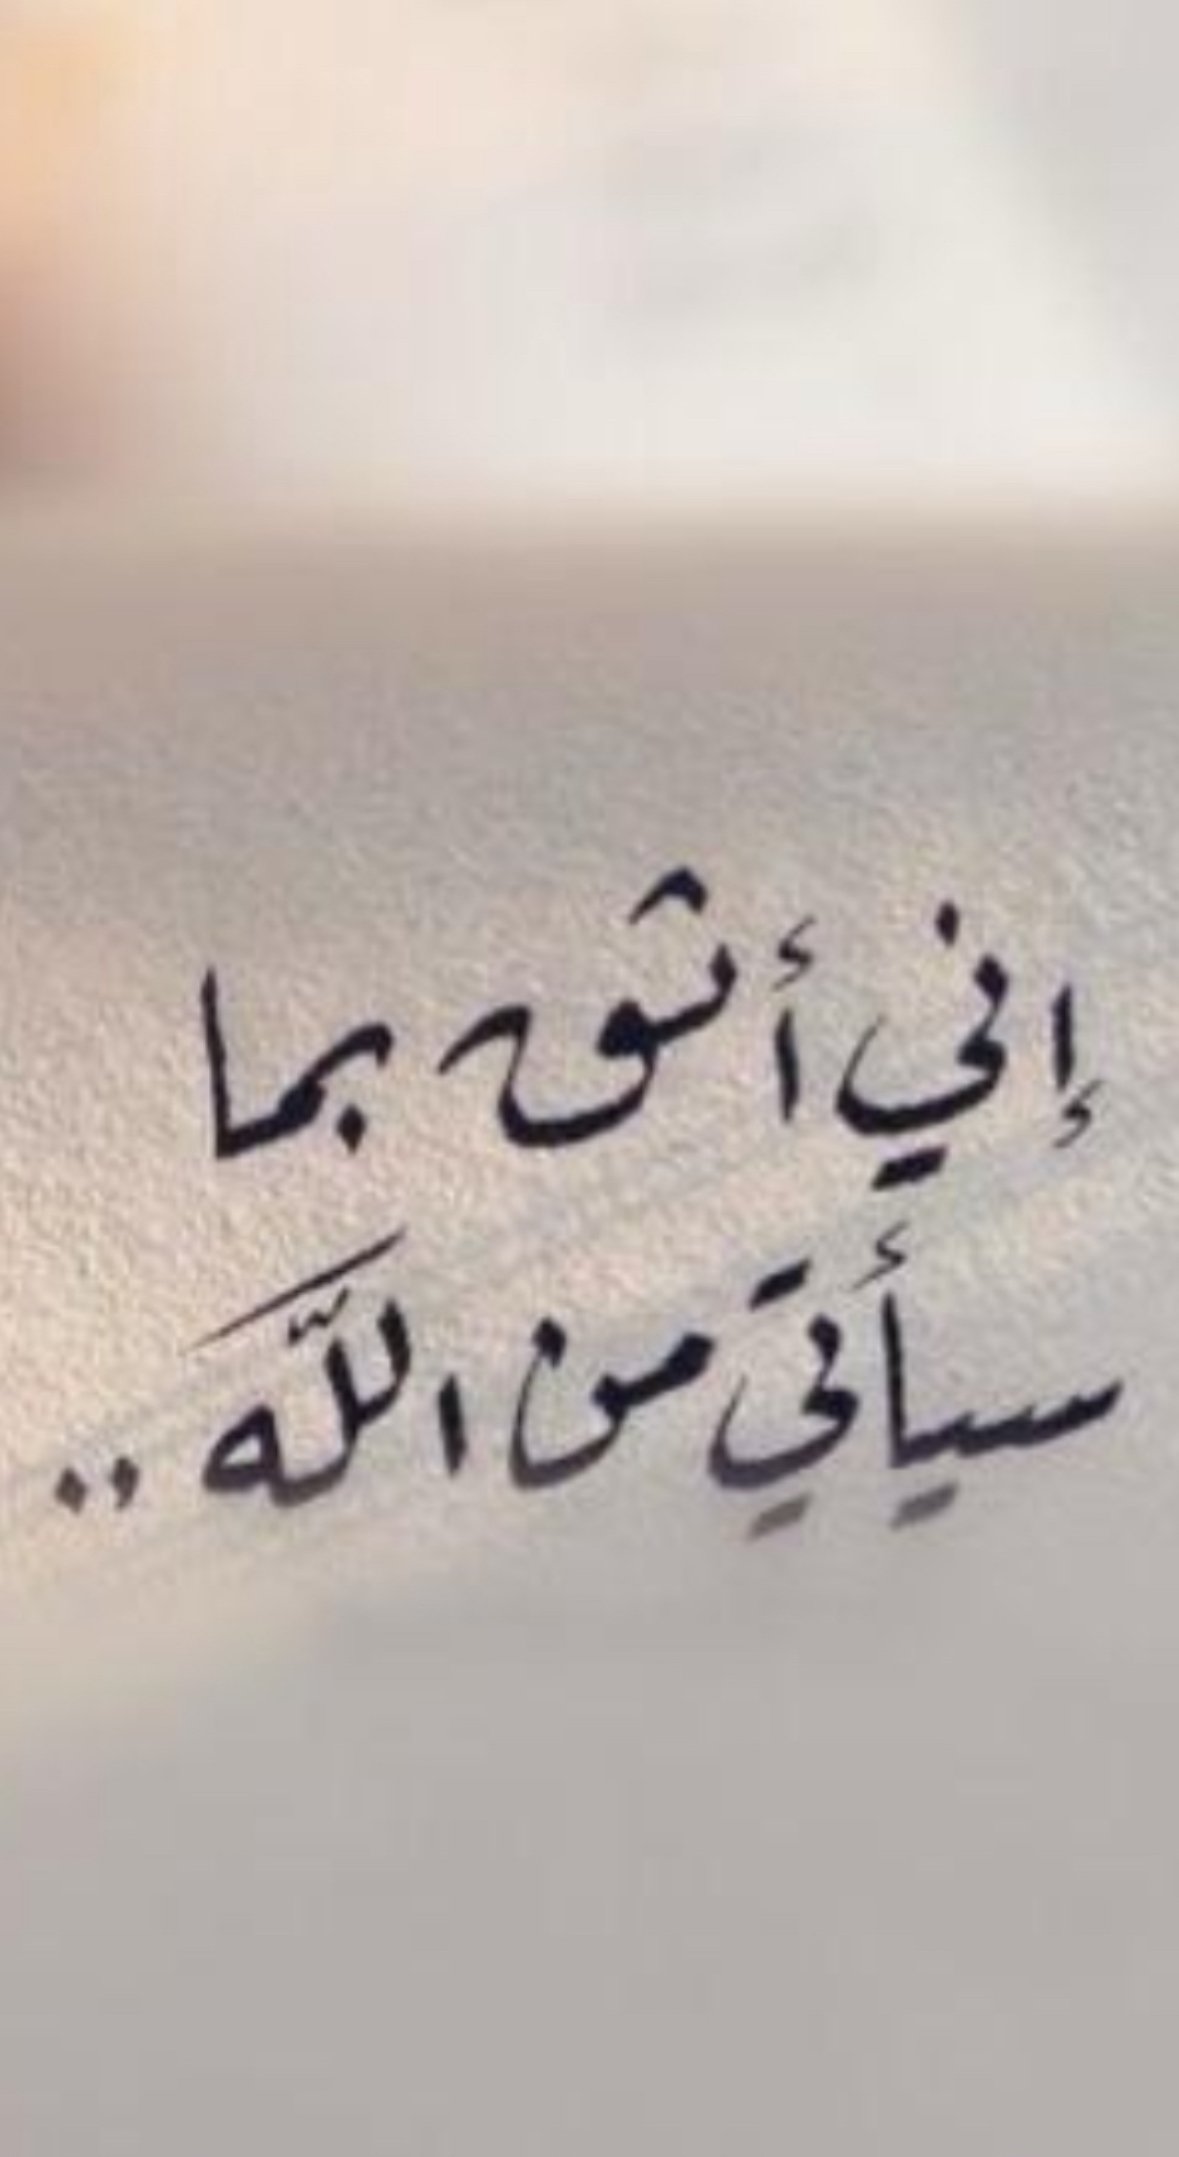 إني أثق بما
سيأتي من اللَّه ..